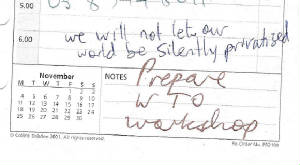 5.00
we will not let our
6.00 world be silently privatised
November
M T W T F S S
1 2 3
4 5 6 7 8 9 10
11 12 13 14 15 16 17
18 19 20 21 22 23 24
25 26 27 28 29 30
NOTES
Prepare
WTO
workshop
© Collins Debden 2001. All rights reserved.
Re-Order No.